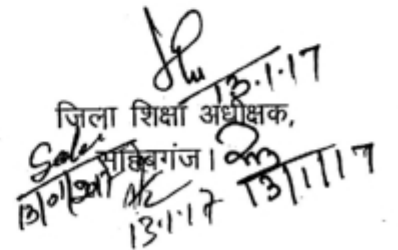 13.1.17
ज़िला शिक्षा अधीक्षक,
साहिबगंज।
13/01/2017
13.1.17
13/1/17